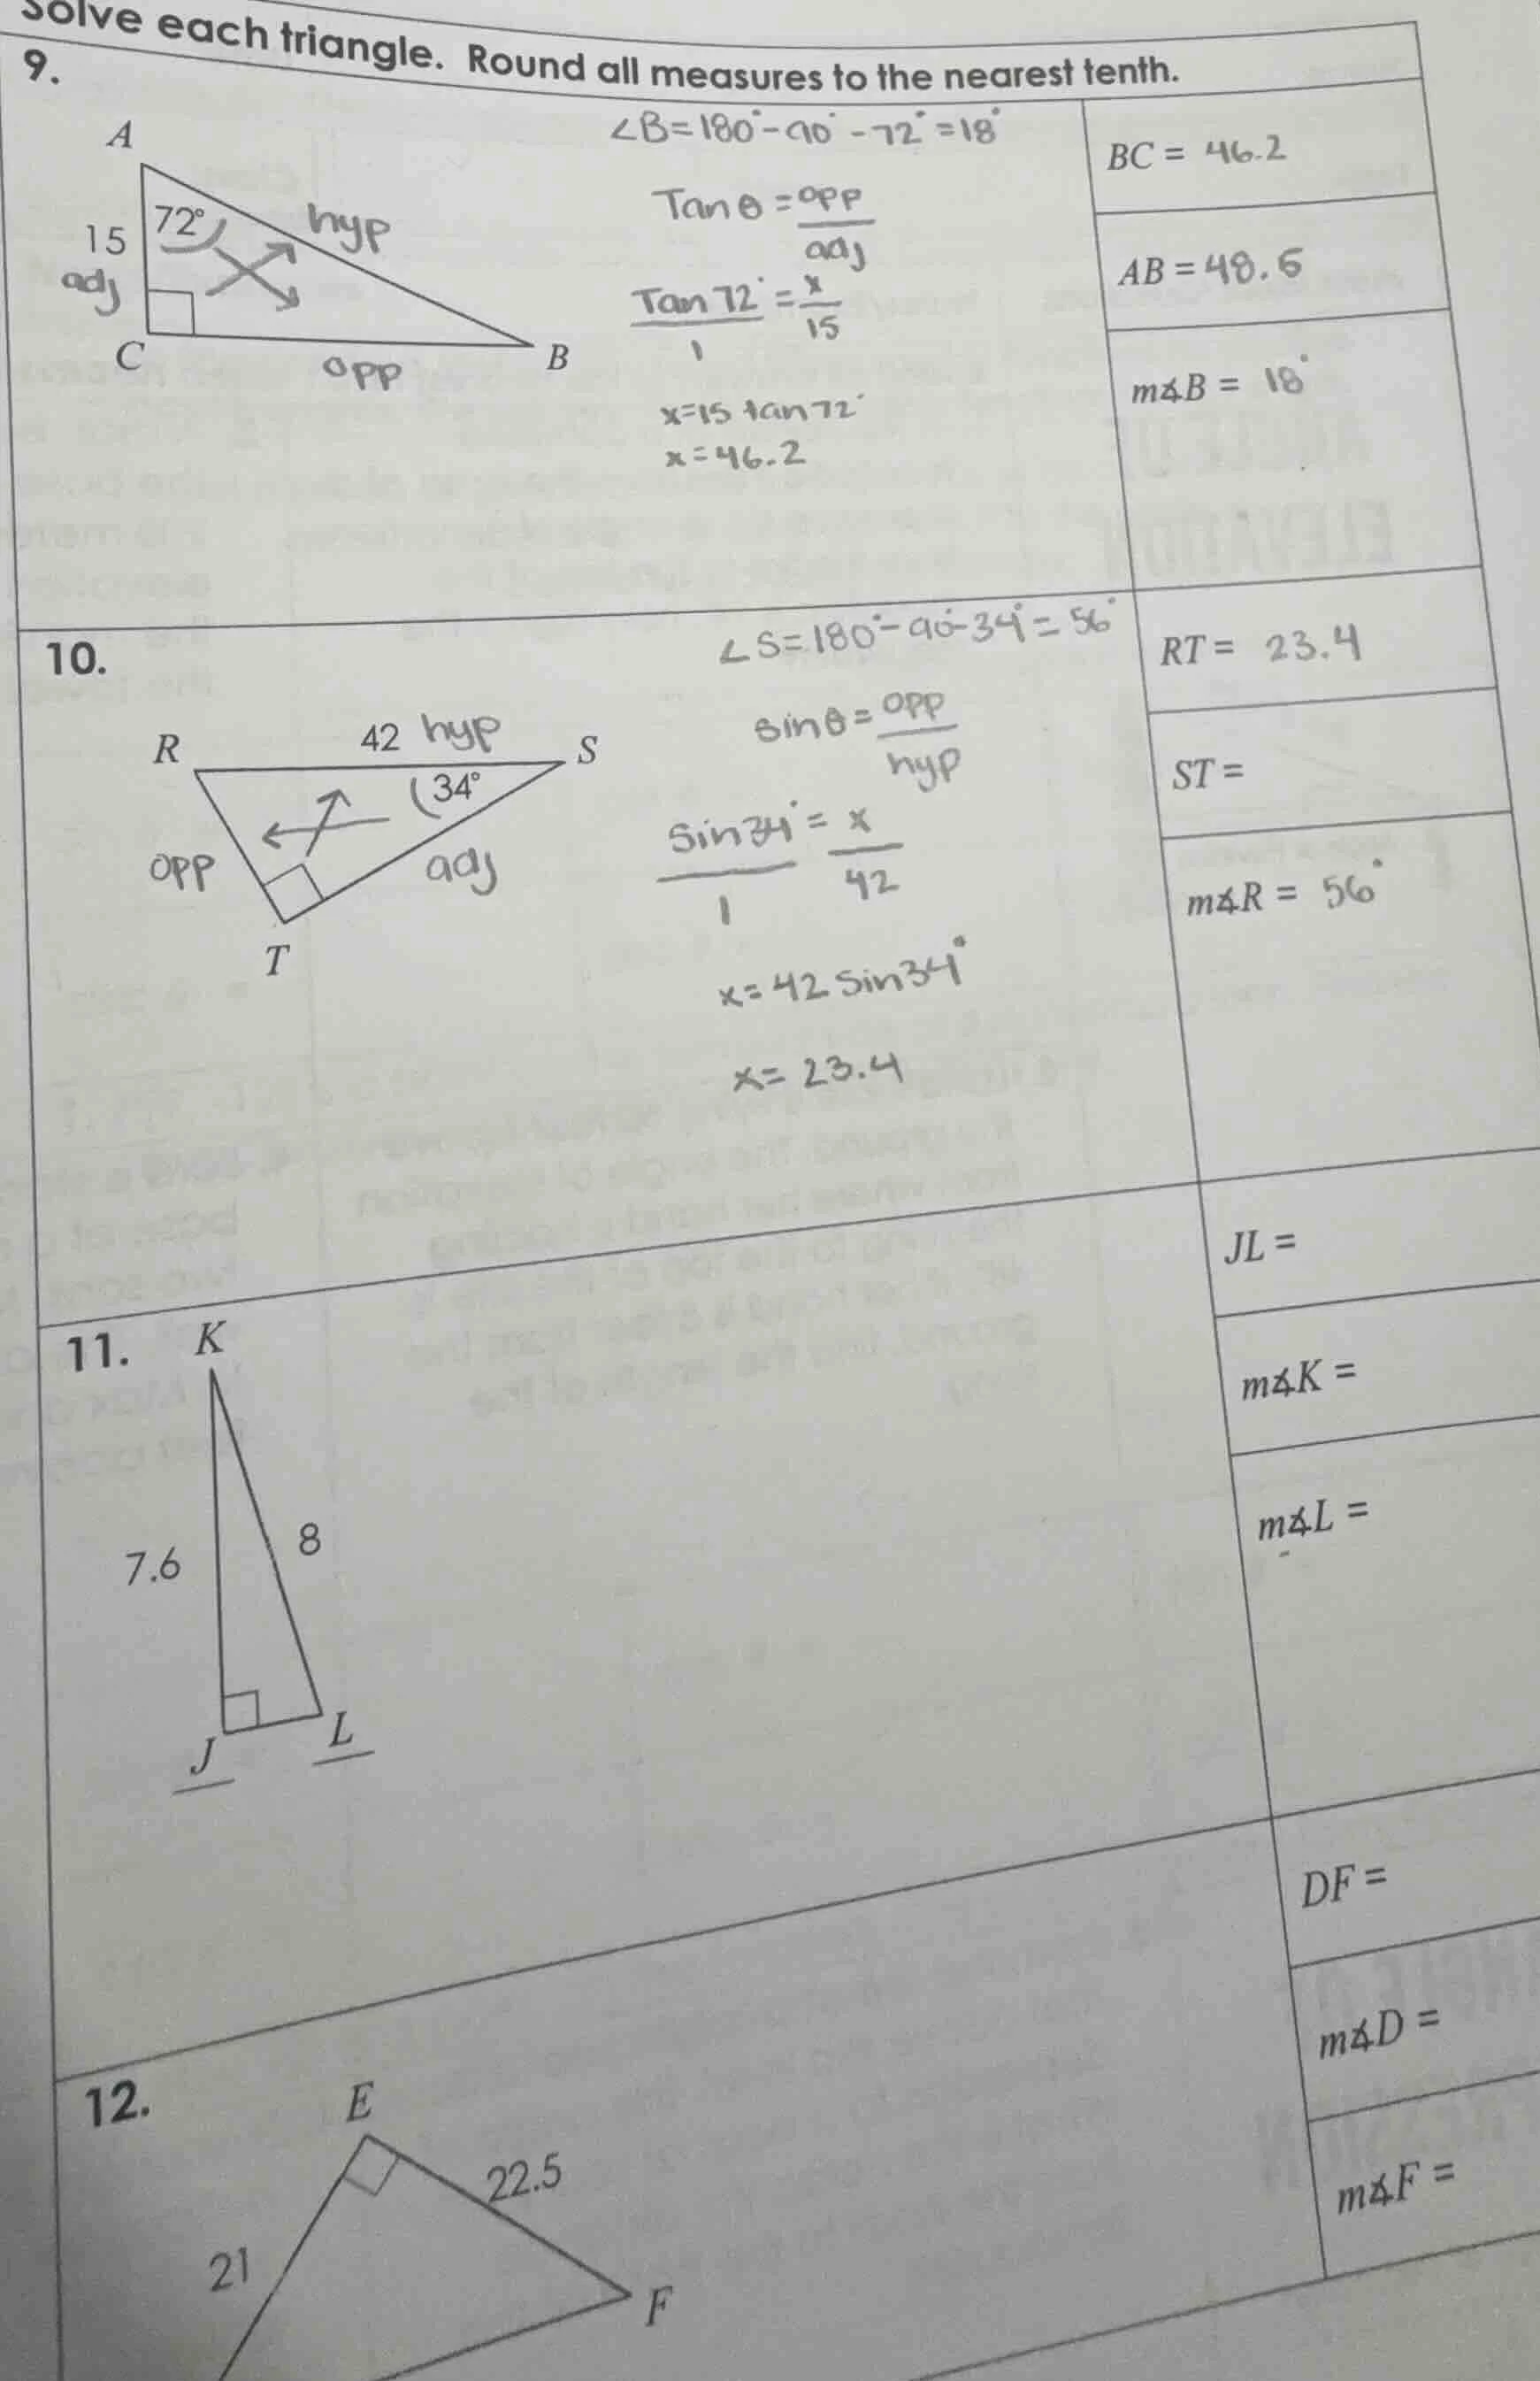 Solve each triangle. Round all measures to the nearest tenth.
9.
A
15
adj
72°
hyp
C
opp
B
∠B=180°-90°-72°=18°
Tan θ = opp
adj
Tan 72° = x
1 15
x=15 tan72°
x=46.2
BC = 46.2
AB = 48.5
m∡B = 18°
10.
R
42 hyp
S
34°
opp
adj
T
∠S=180°-90°-34°=56°
sin θ = opp
hyp
Sin34° = x
1 42
x=42 Sin34°
x= 23.4
RT = 23.4
ST =
m∡R = 56°
11.
K
7.6
8
J
L
JL =
m∡K =
m∡L =
12.
E
22.5
21
F
DF =
m∡D =
m∡F =